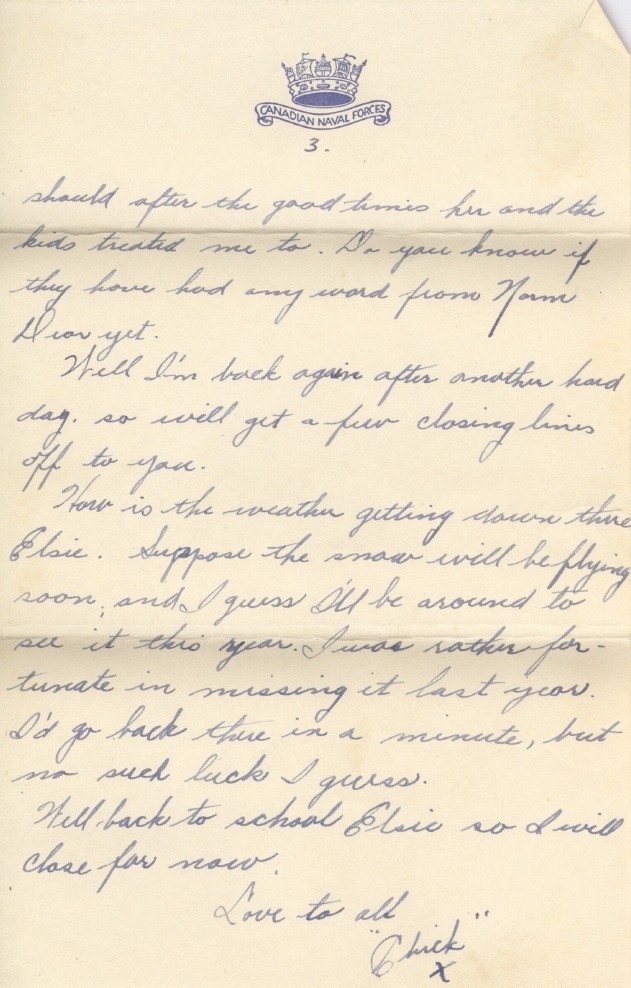 CANADIAN NAVAL FORCES
3.
should after the good times her and the
kids treated me to. Do you know if
they have had any word from Norm
Dear yet.
Well I'm back again after another hard
day. so will get a few closing lines
off to you.
How is the weather getting down there
Elsie. Suppose the snow will be flying
soon, and I guess I'll be around to
see it this year. I was rather for-
tunate in missing it last year.
I'd go back there in a minute, but
no such luck I guess.
Well back to school Elsie so I will
close for now.
Love to all
"Chick"
X